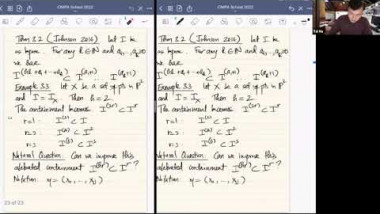 CIMPA School 2022
CIMPA School 2022
Thm 3.2 (Johnson 2014) Let I be
as before. For any k∈ℕ and a₁,…,aₖ≥0
we have
Example 3.3 Let X be a set of pts in P²
and I = I_X Then h = 2.
The containment becomes I^(2r) ⊂ I^r
r=1 I^(2) ⊂ I
r=2 I^(4) ⊂ I²
r=3 I^(6) ⊂ I³
Natural Question: Can we improve this
celebrated containment I^(hr) ⊂ I^r?
Notation: 𝔪 = (x₀, …, x_N)
23 of 23
Thm 3.2 (Johnson 2014) Let I be
as before. For any k∈ℕ and a₁,…,aₖ≥0
we have
Example 3.3 Let X be a set of pts in P²
and I = I_X Then h = 2.
The containment becomes I^(2r) ⊂ I^r
r=1 I^(2) ⊂ I
r=2 I^(4) ⊂ I²
r=3 I^(6) ⊂ I³
Natural Question: Can we improve this
celebrated containment I^(hr) ⊂ I^r?
Notation: 𝔪 = (x₀, …, x_N)